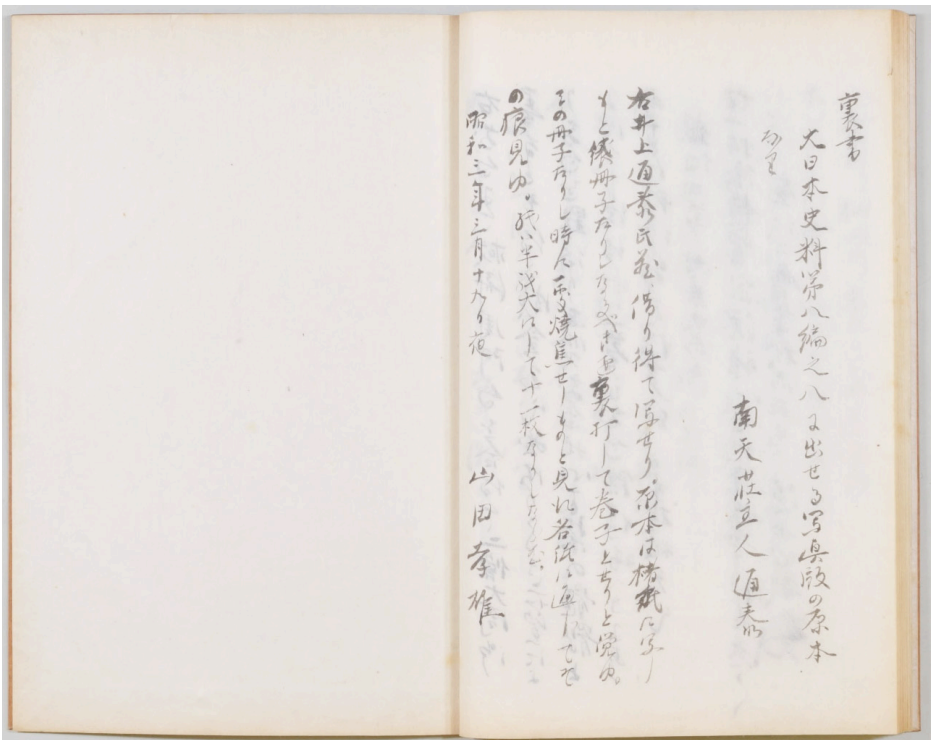 裏書
大日本史料第八編之八に出せる写真版の原本
なり
南天荘主人 通泰
右井上通泰氏蔵、借り得て写せり。原本は楮紙に写し
もと袋冊子なりしなるべきを裏打して巻子とせりと覚ゆ。
その冊子なりし時に一度焼焦せしものと見れ各紙に通してそ
の痕見ゆ。紙は半紙大にして十一枚
昭和三年三月十九日夜 山田孝雄